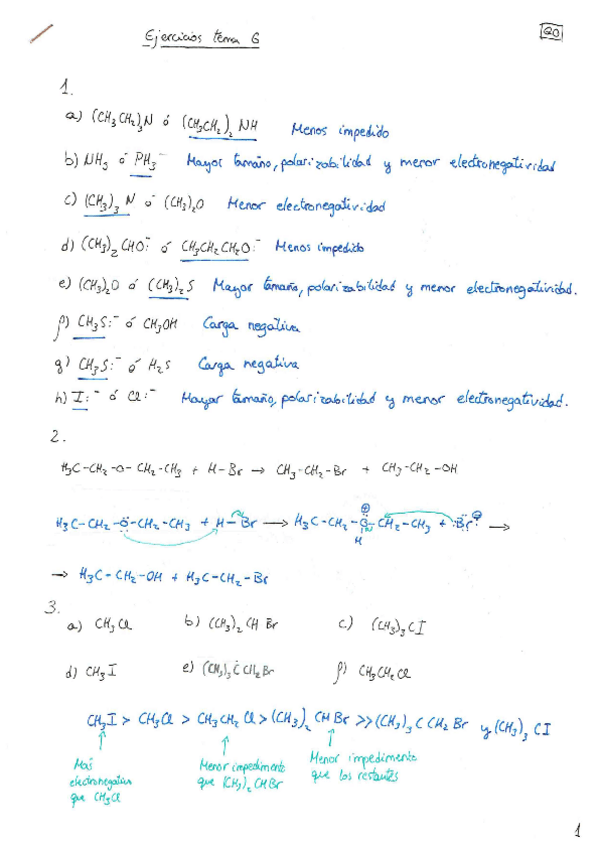 Ejercicios tema 6
20
1.
a) (CH₃CH₂)₃N ó (CH₃CH₂)₂ NH Menos impedido
b) NH₃ ó PH₃⁻ Mayor tamaño, polarizabilidad y menor electronegatividad
c) (CH₃)₃ N ó (CH₃)₂O Menor electronegatividad
d) (CH₃)₂ CHO:⁻ ó CH₃CH₂CH₂O:⁻ Menos impedido
e) (CH₃)₂O ó (CH₃)₂S Mayor tamaño, polarizabilidad y menor electronegatividad.
f) CH₃S:⁻ ó CH₃OH Carga negativa
g) CH₃S:⁻ ó H₂S Carga negativa
h) I:⁻ ó Cl:⁻ Mayor tamaño, polarizabilidad y menor electronegatividad.
2.
H₃C-CH₂-O-CH₂-CH₃ + H-Br → CH₃-CH₂-Br + CH₃-CH₂-OH
H₃C-CH₂-O-CH₂-CH₃ + H-Br → H₃C-CH₂-O-CH₂-CH₃ + :Br →
⊕
H
→ H₃C-CH₂-OH + H₃C-CH₂-Br
3.
a) CH₃Cl b) (CH₃)₂ CH Br c) (CH₃)₃ CI
d) CH₃I e) (CH₃)₃ C CH₂ Br f) CH₃CH₂Cl
CH₃I > CH₃Cl > CH₃CH₂Cl > (CH₃)₂ CHBr >> (CH₃)₃ C CH₂ Br y (CH₃)₃ CI
Más electronegativo que CH₃Cl
Menor impedimento que (CH₃)₂ CHBr
Menor impedimento que los restantes
1